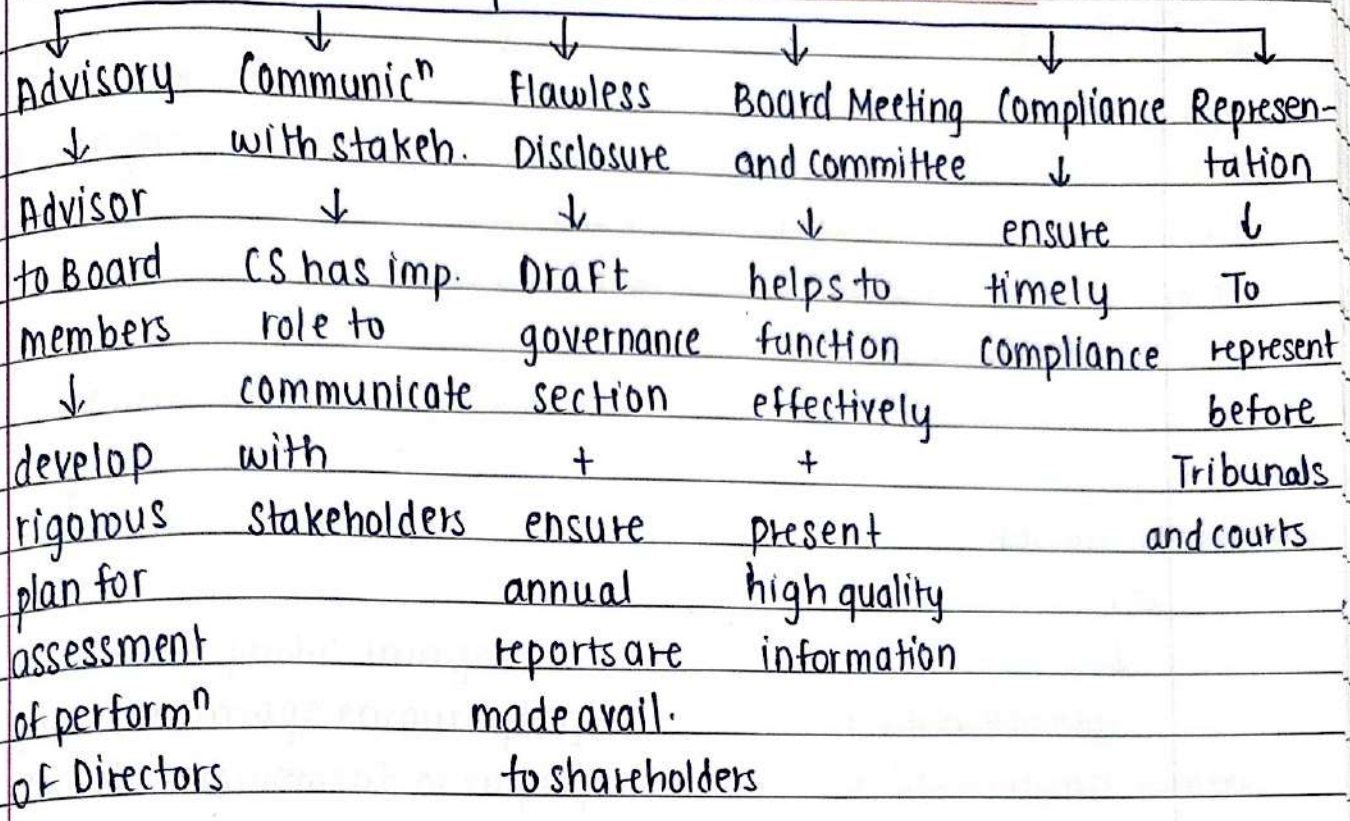 Advisory
↓
Advisor
to Board
members
↓
develop
rigorous
plan for
assessment
of performⁿ
of Directors
Communicⁿ
with stakeh.
↓
CS has imp.
role to
communicate
with
stakeholders
Flawless
Disclosure
↓
Draft
governance
section
+
ensure
annual
reports are
made avail.
to shareholders
Board Meeting
and committee
↓
helps to
function
effectively
+
present
high quality
information
Compliance
↓
ensure
timely
compliance
Represen-
tation
↓
To
represent
before
Tribunals
and courts